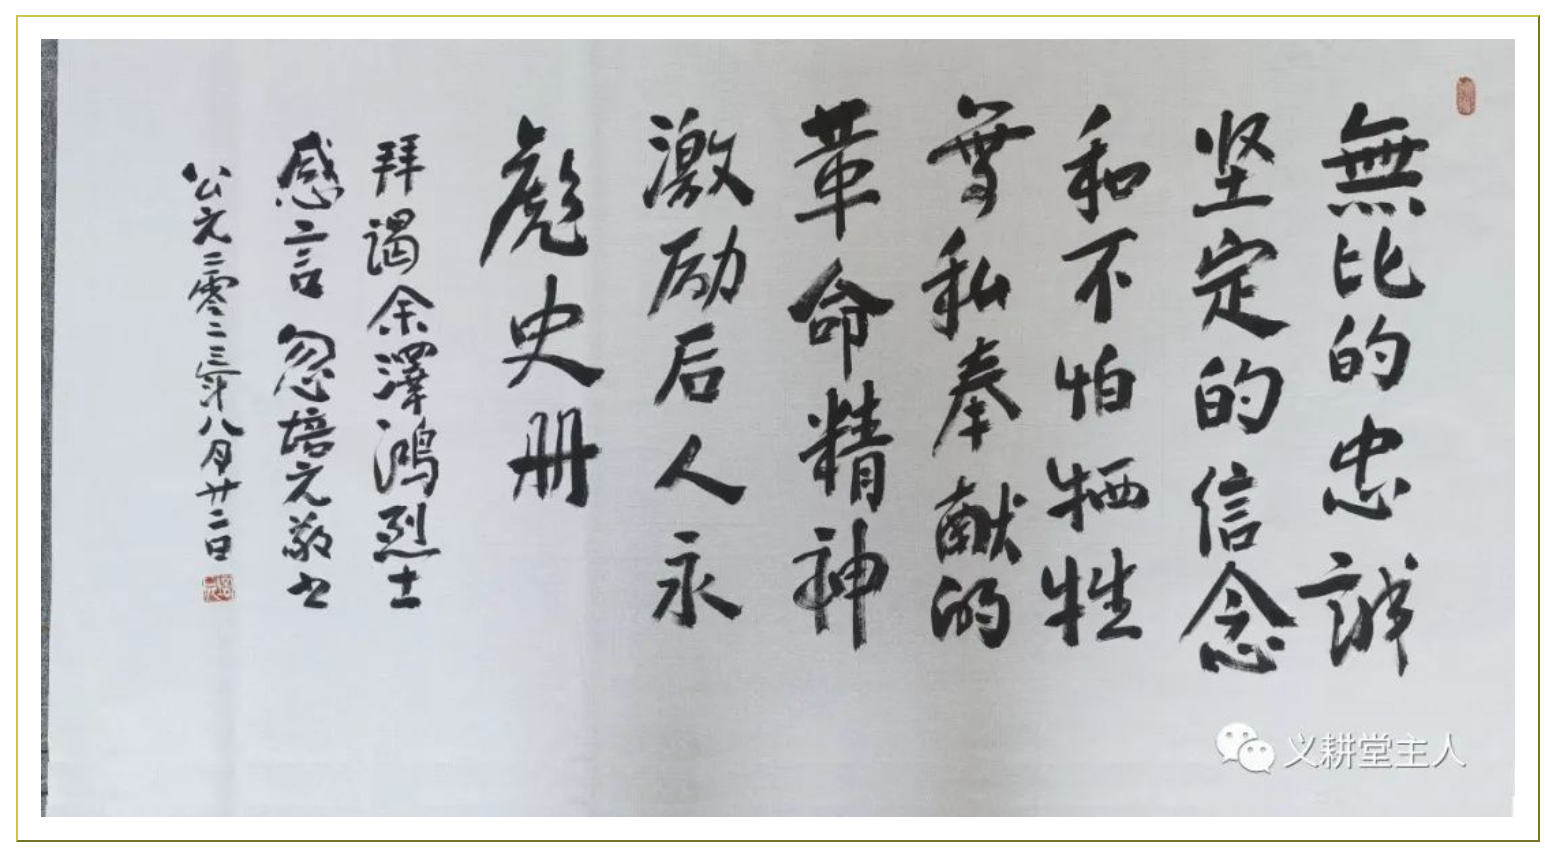 無比的忠誠
坚定的信念
和不怕牺牲
無私奉献的
革命精神
激励后人永
彪史册
拜谒余澤鴻烈士
感言 忽培元敬书
公元二零二三年八月廿二日
培元
义耕堂主人